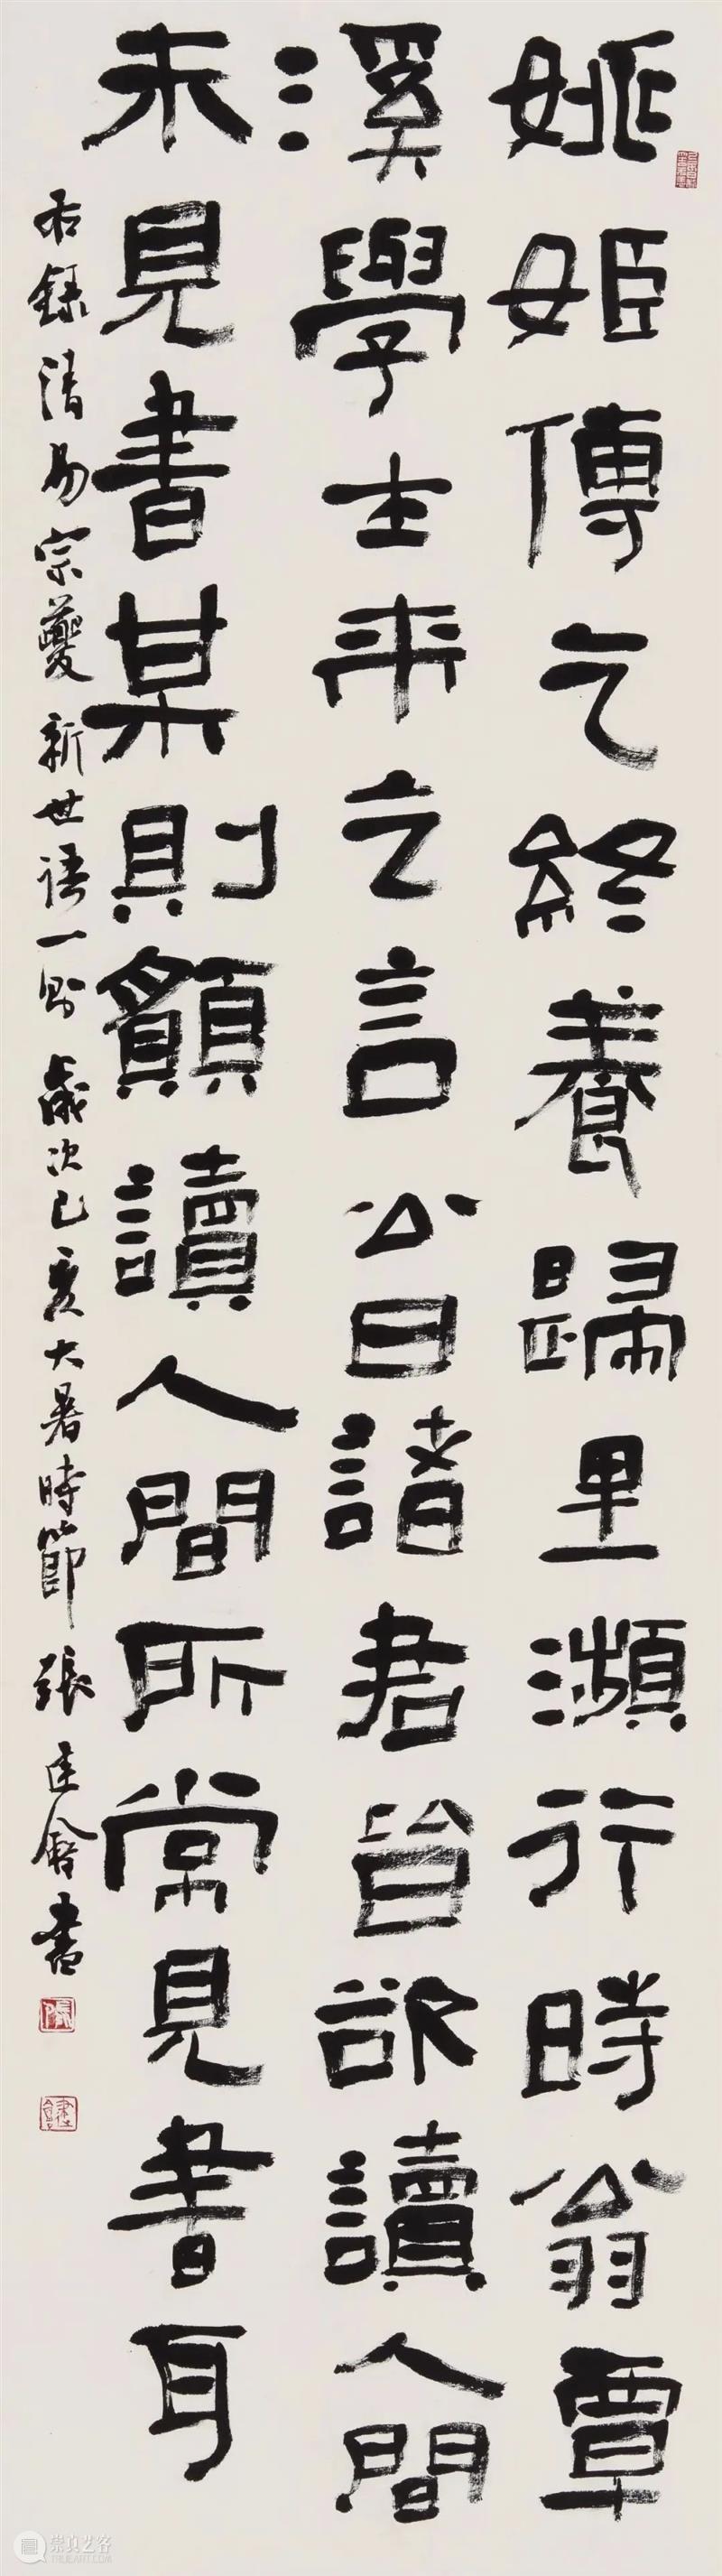 姚姬傳之終養歸里瀕行時翁覃
溪學士來乞言公曰諸君皆欲讀人間
未見書某則願讀人間所常見書耳
右錄清易宗夔新世語一則歲次己亥大暑時節張建會書
崇真艺客